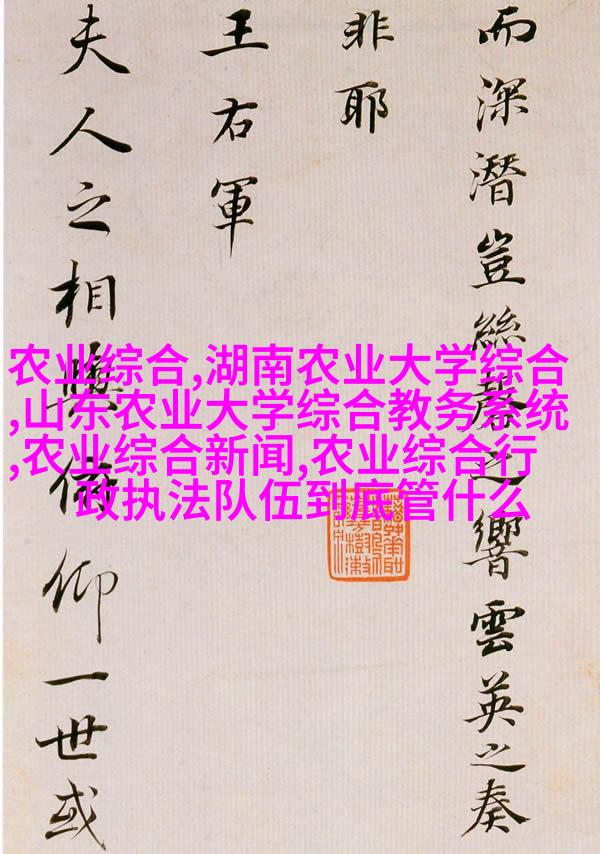 而深潛豈絲磬之響雲英之奏
非耶
王右軍
夫人之相與俯仰一世或
农业综合,湖南农业大学综合
,山东农业大学综合教务系统
,农业综合新闻,农业综合行
政执法队伍到底管什么